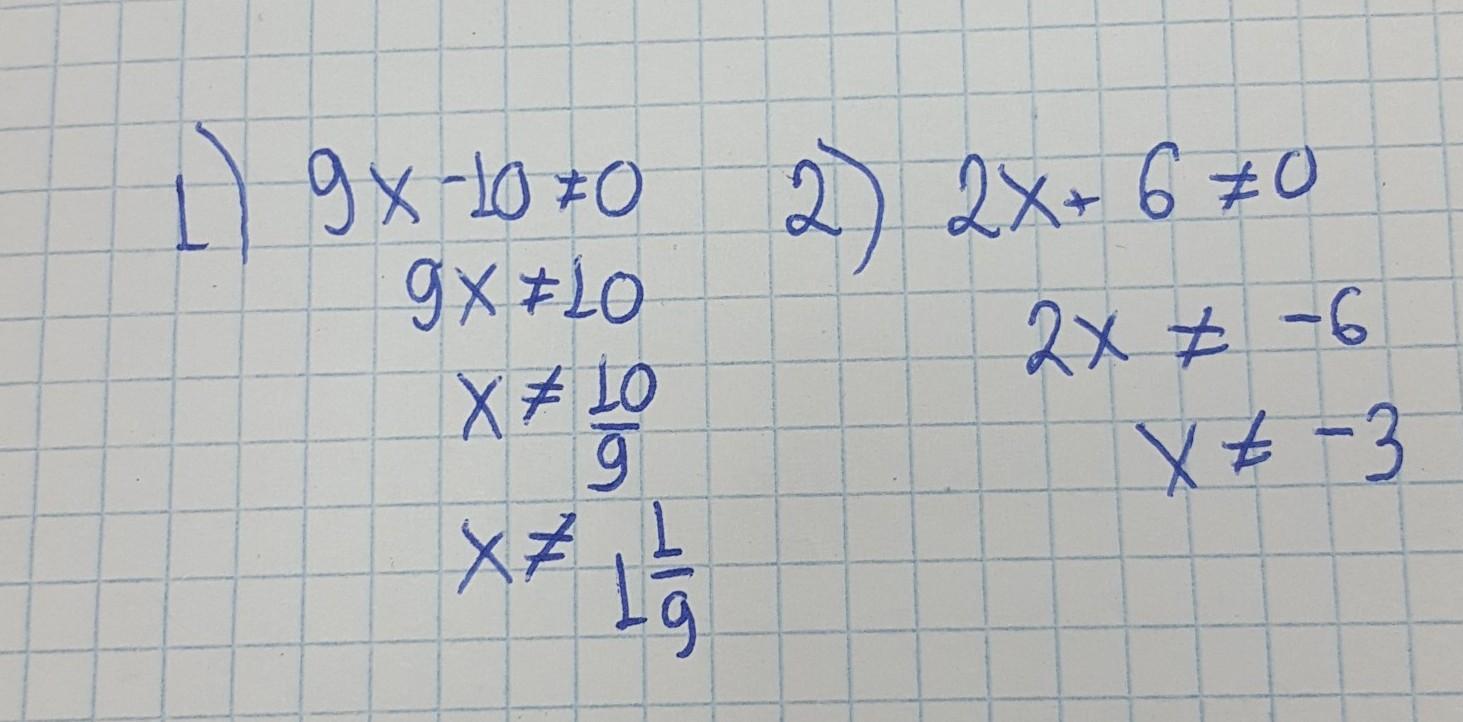 1) 9x - 10 ≠ 0
9x ≠ 10
x ≠ 10/9
x ≠ 1 1/9
2) 2x + 6 ≠ 0
2x ≠ -6
x ≠ -3